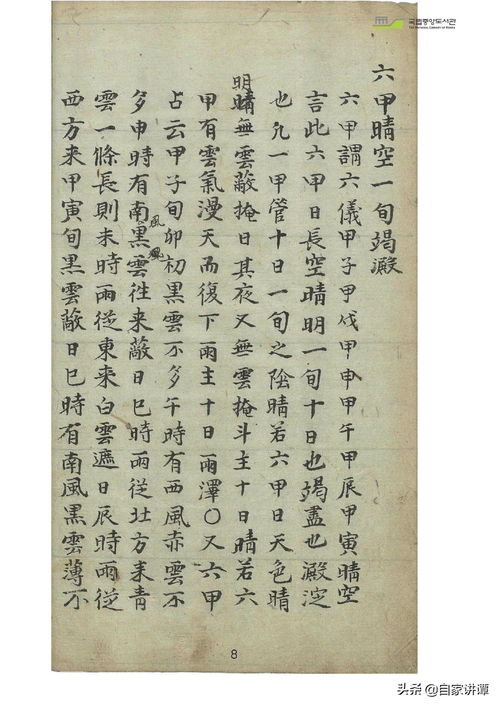 국립중앙도서관
THE NATIONAL LIBRARY OF KOREA
六甲晴空一旬竭澱
六甲謂六儀甲子甲戌甲申甲午甲辰甲寅晴空
言此六甲日長空晴明一旬十日也竭盡也澱淀
也凡一甲管十日一旬之陰晴若六甲日天色晴
明晴無雲蔽掩日其夜又無雲掩斗主十日晴若六
甲有雲氣漫天而復下雨主十日雨澤〇又六甲
占云甲子旬卯初黑雲不多午時有西風赤雲不
多申時有南風黑風雲徃来蔽日巳時雨從北方来青
雲一條長則未時雨從東来白雲遮日辰時雨從
西方来甲寅旬黑雲蔽日巳時有南風黑雲薄不
8
头条 @自家讲谭